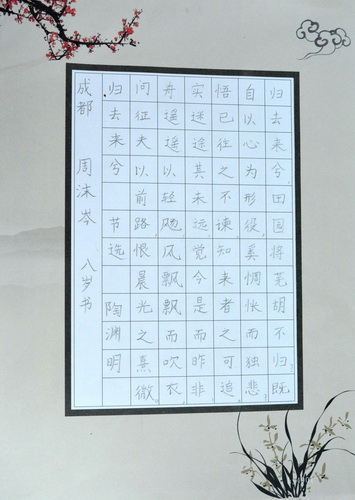 归去来兮田园将芜胡不归既
自以心为形役奚惆怅而独悲
悟已往之不谏知来者之可追
实迷途其未远觉今是而昨非
舟遥遥以轻飏风飘飘而吹衣
问征夫以前路恨晨光之熹微
归去来兮 节选 陶渊明
成都 周沫岑 八岁书